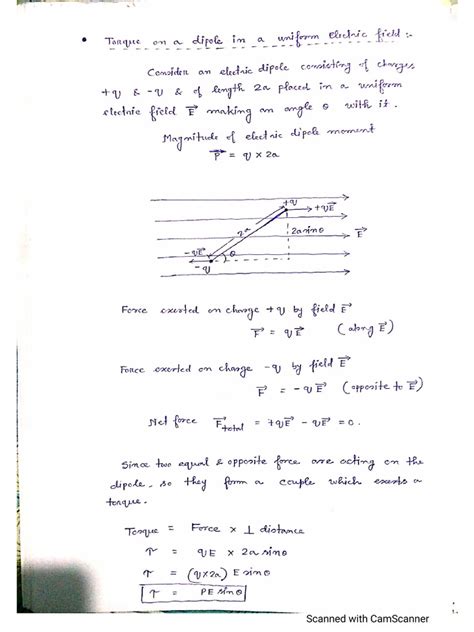 • Torque on a dipole in a uniform Electric field :-
Consider an electric dipole consisting of charges
+q & -q & of length 2a placed in a uniform
electric field E⃗ making an angle θ with it.
Magnitude of electric dipole moment
P⃗ = q × 2a
+q
+qE⃗
2a
2a sinθ
E⃗
-qE⃗
θ
-q
Force exerted on charge +q by field E⃗
F⃗ = qE⃗ (along E⃗)
Force exerted on charge -q by field E⃗
F⃗ = -qE⃗ (opposite to E⃗)
Net force F⃗total = +qE⃗ - qE⃗ = 0.
Since two equal & opposite force are acting on the
dipole, so they form a couple which exerts a
torque.
Torque = Force × ⊥ distance
τ = qE × 2a sinθ
τ = (q×2a) E sinθ
τ = PE sinθ
Scanned with CamScanner